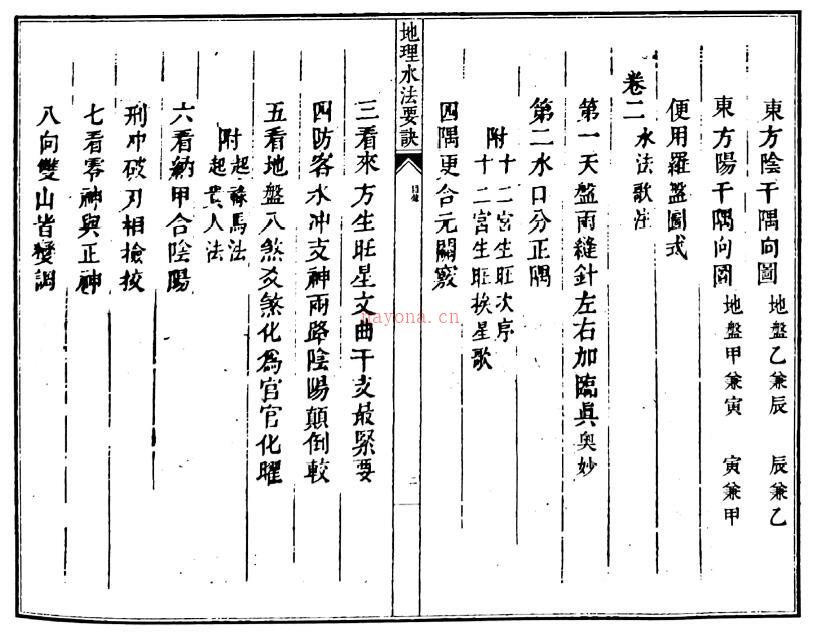 東方陰干隅向圖 地盤乙兼辰 辰兼乙
東方陽干隅向圖 地盤甲兼寅 寅兼甲
便用羅盤圖式
卷二 水法歌注
第一天盤兩縫針左右加臨眞奧妙
第二水口分正隅
附十二宮生旺次序
十二宮生旺挨星歌
四隅更合元關竅
地理水法要訣
目錄
二
三看來方生旺星文曲干支最緊要
四防客水冲支神兩路陰陽顛倒較
五看地盤八煞爻煞化爲官官化曜
附起祿馬法
起貴人法
六看納甲合陰陽
刑冲破刃相檢挍
七看零神與正神
八向雙山皆變調
nayona.cn